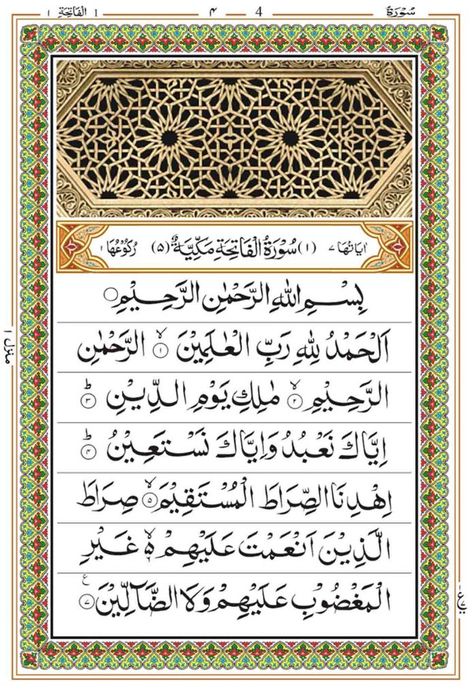 سُوۡرَةُ ٤ 4 الفَاتِحَة ١
اٰيَاتُهَا ٧ (١) سُوۡرَةُ الۡفَاتِحَةِ مَكِّيَّةٌ (٥) رُكُوۡعُهَا ١
بِسۡمِ اللهِ الرَّحۡمٰنِ الرَّحِيۡمِ
اَلۡحَمۡدُ لِلّٰهِ رَبِّ الۡعٰلَمِيۡنَ ۙ‏ ١ الرَّحۡمٰنِ
الرَّحِيۡمِ ۙ‏ ٢ مٰلِكِ يَوۡمِ الدِّيۡنِ ؕ‏ ٣
اِيَّاكَ نَعۡبُدُ وَاِيَّاكَ نَسۡتَعِيۡنُ ؕ‏ ٤
اِهۡدِنَا الصِّرَاطَ الۡمُسۡتَقِيۡمَ ۙ‏ ٥ صِرَاطَ
الَّذِيۡنَ اَنۡعَمۡتَ عَلَيۡهِمۡ ۙ ٦ غَيۡرِ
الۡمَغۡضُوۡبِ عَلَيۡهِمۡ وَلَا الضَّآلِّيۡنَ ٧ ع
منزل ١